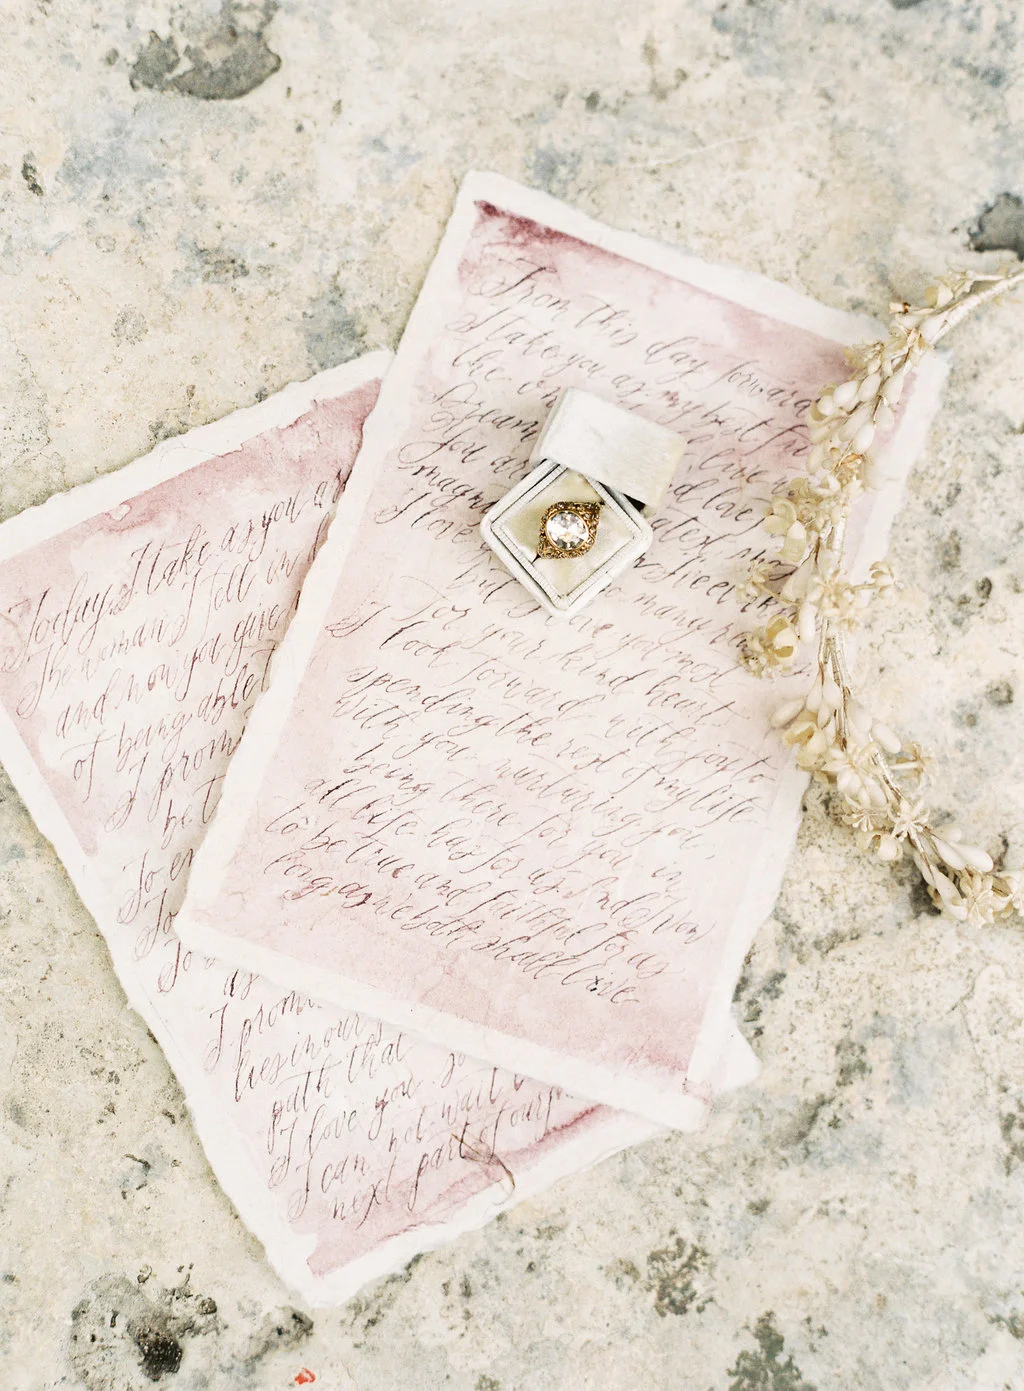 From this day forward
I take you as my best fri
the on
Dream , live
You are d laes
magn ates
I love y
but I love you most
For your kind heart
I look forward with joy to
spending the rest of my life
with you nurturing you,
being there for you in
all life has for us. And I vow
to be true and faithful for as
long as we both shall live
Today, I take as you ar
the woman I fell in
and now you give
of being able t
I prom
be t
To en
To
To
as
I promi
lies in our
path that
I love you so
I can not wait t
next part of our